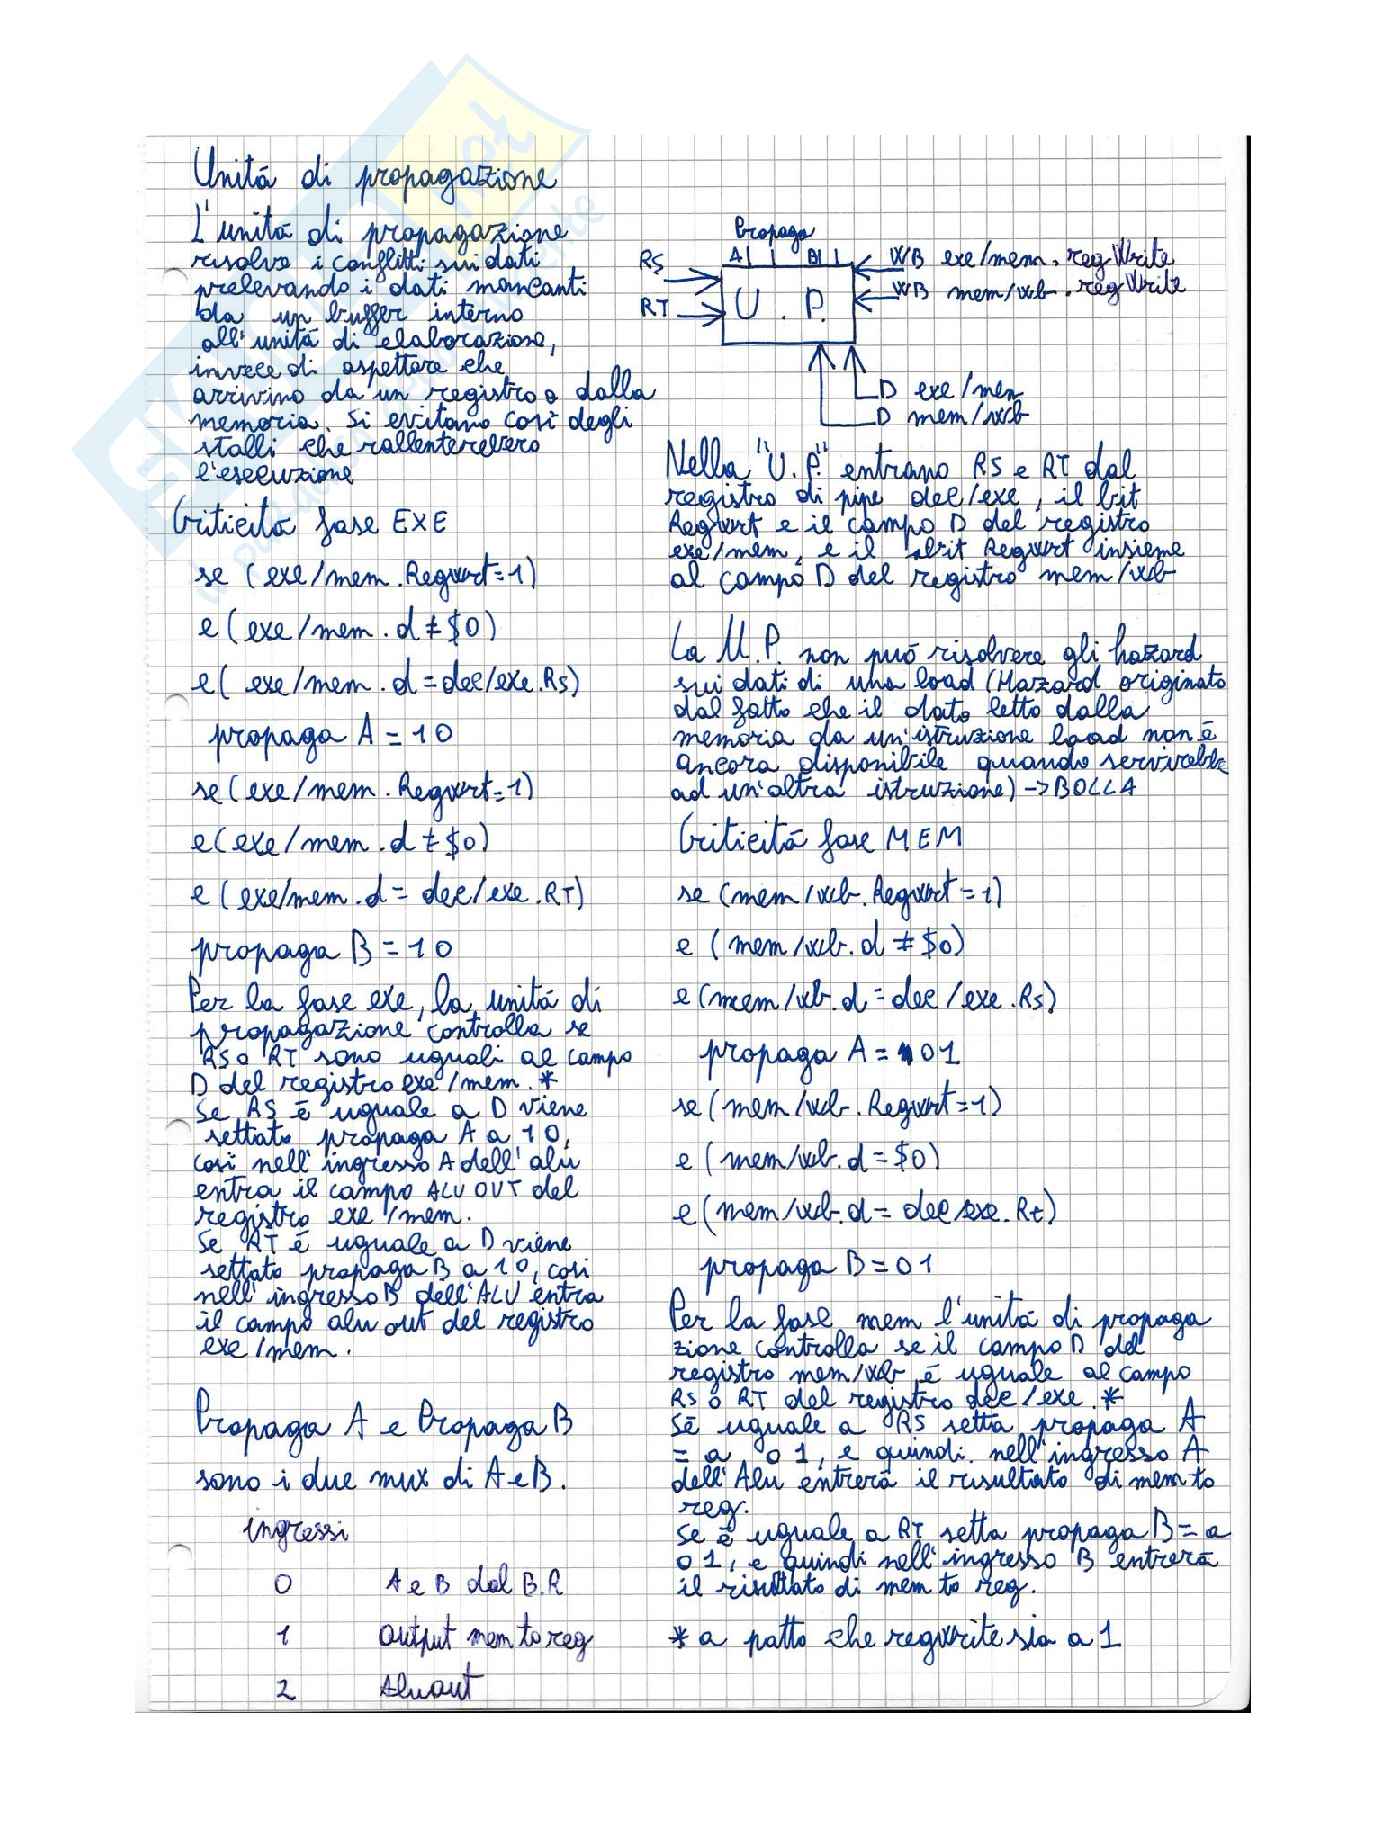 Unitá di propagazione
L'unitá di propagazione
risolve i conflitti sui dati
prelevando i dati mancanti
da un buffer interno
all'unitá di elaborazione,
invece di aspettare che
arrivino da un registro o dalla
memoria. Si evitano cosí degli
stalli che rallenterebbero
l'esecuzione
Criticitá fase EXE
se (exe/mem.Regwrt=1)
e (exe/mem.d ≠ $0)
e( exe/mem.d = dec/exe.Rs)
propaga A = 10
se(exe/mem.Regwrt=1)
e(exe/mem.d ≠ $0)
e (exe/mem.d = dec/exe.RT)
propaga B = 10
Per la fase exe, la unitá di
propagazione controlla se
RS o RT sono uguali al campo
D del registro exe/mem.*
Se RS é uguale a D viene
settato propaga A a 10,
cosí nell'ingresso A dell'alu
entra il campo ALU OUT del
registro exe/mem.
Se RT é uguale a D viene
settato propaga B a 10, cosi
nell'ingresso B dell'ALU entra
il campo alu out del registro
exe/mem.
Propaga A e Propaga B
sono i due mux di A e B.
Ingressi
0 A e B dal B.R
1 output mem to reg
2 Aluout
Propaga
A B
RS
RT
U.P.
WB exe/mem.regWrite
WB mem/wb.regWrite
D exe/mem
D mem/wb
Nella "U.P." entrano RS e RT dal
registro di pipe dec/exe, il bit
Regwrt e il campo D del registro
exe/mem, e il bit Regwrt insieme
al campo D del registro mem/wb
La U.P. non puó risolvere gli hazard
sui dati di una load (Hazard originato
dal fatto che il dato letto dalla
memoria da un'istruzione load non é
ancora disponibile quando servirebbe
ad un'altra istruzione) -> BOLLA
Criticitá fase MEM
se (mem/wb.Regwrt=1)
e (mem/wb.d ≠ $0)
e(mem/wb.d = dec/exe.Rs)
propaga A = 01
se(mem/wb.Regwrt=1)
e (mem/wb.d = $0)
e(mem/wb.d = dec/exe.Rt)
propaga B = 01
Per la fase mem l'unitá di propaga
zione controlla se il campo D del
registro mem/wb é uguale al campo
RS o RT del registro dec/exe.*
Sé uguale a RS setta propaga A
= a 01, e quindi nell'ingresso A
dell'Alu entrerá il risultato di mem to
reg.
Se é uguale a RT setta propaga B = a
01, e quindi nell'ingresso B entrerá
il risultato di mem to reg.
* a patto che regwrite sia a 1